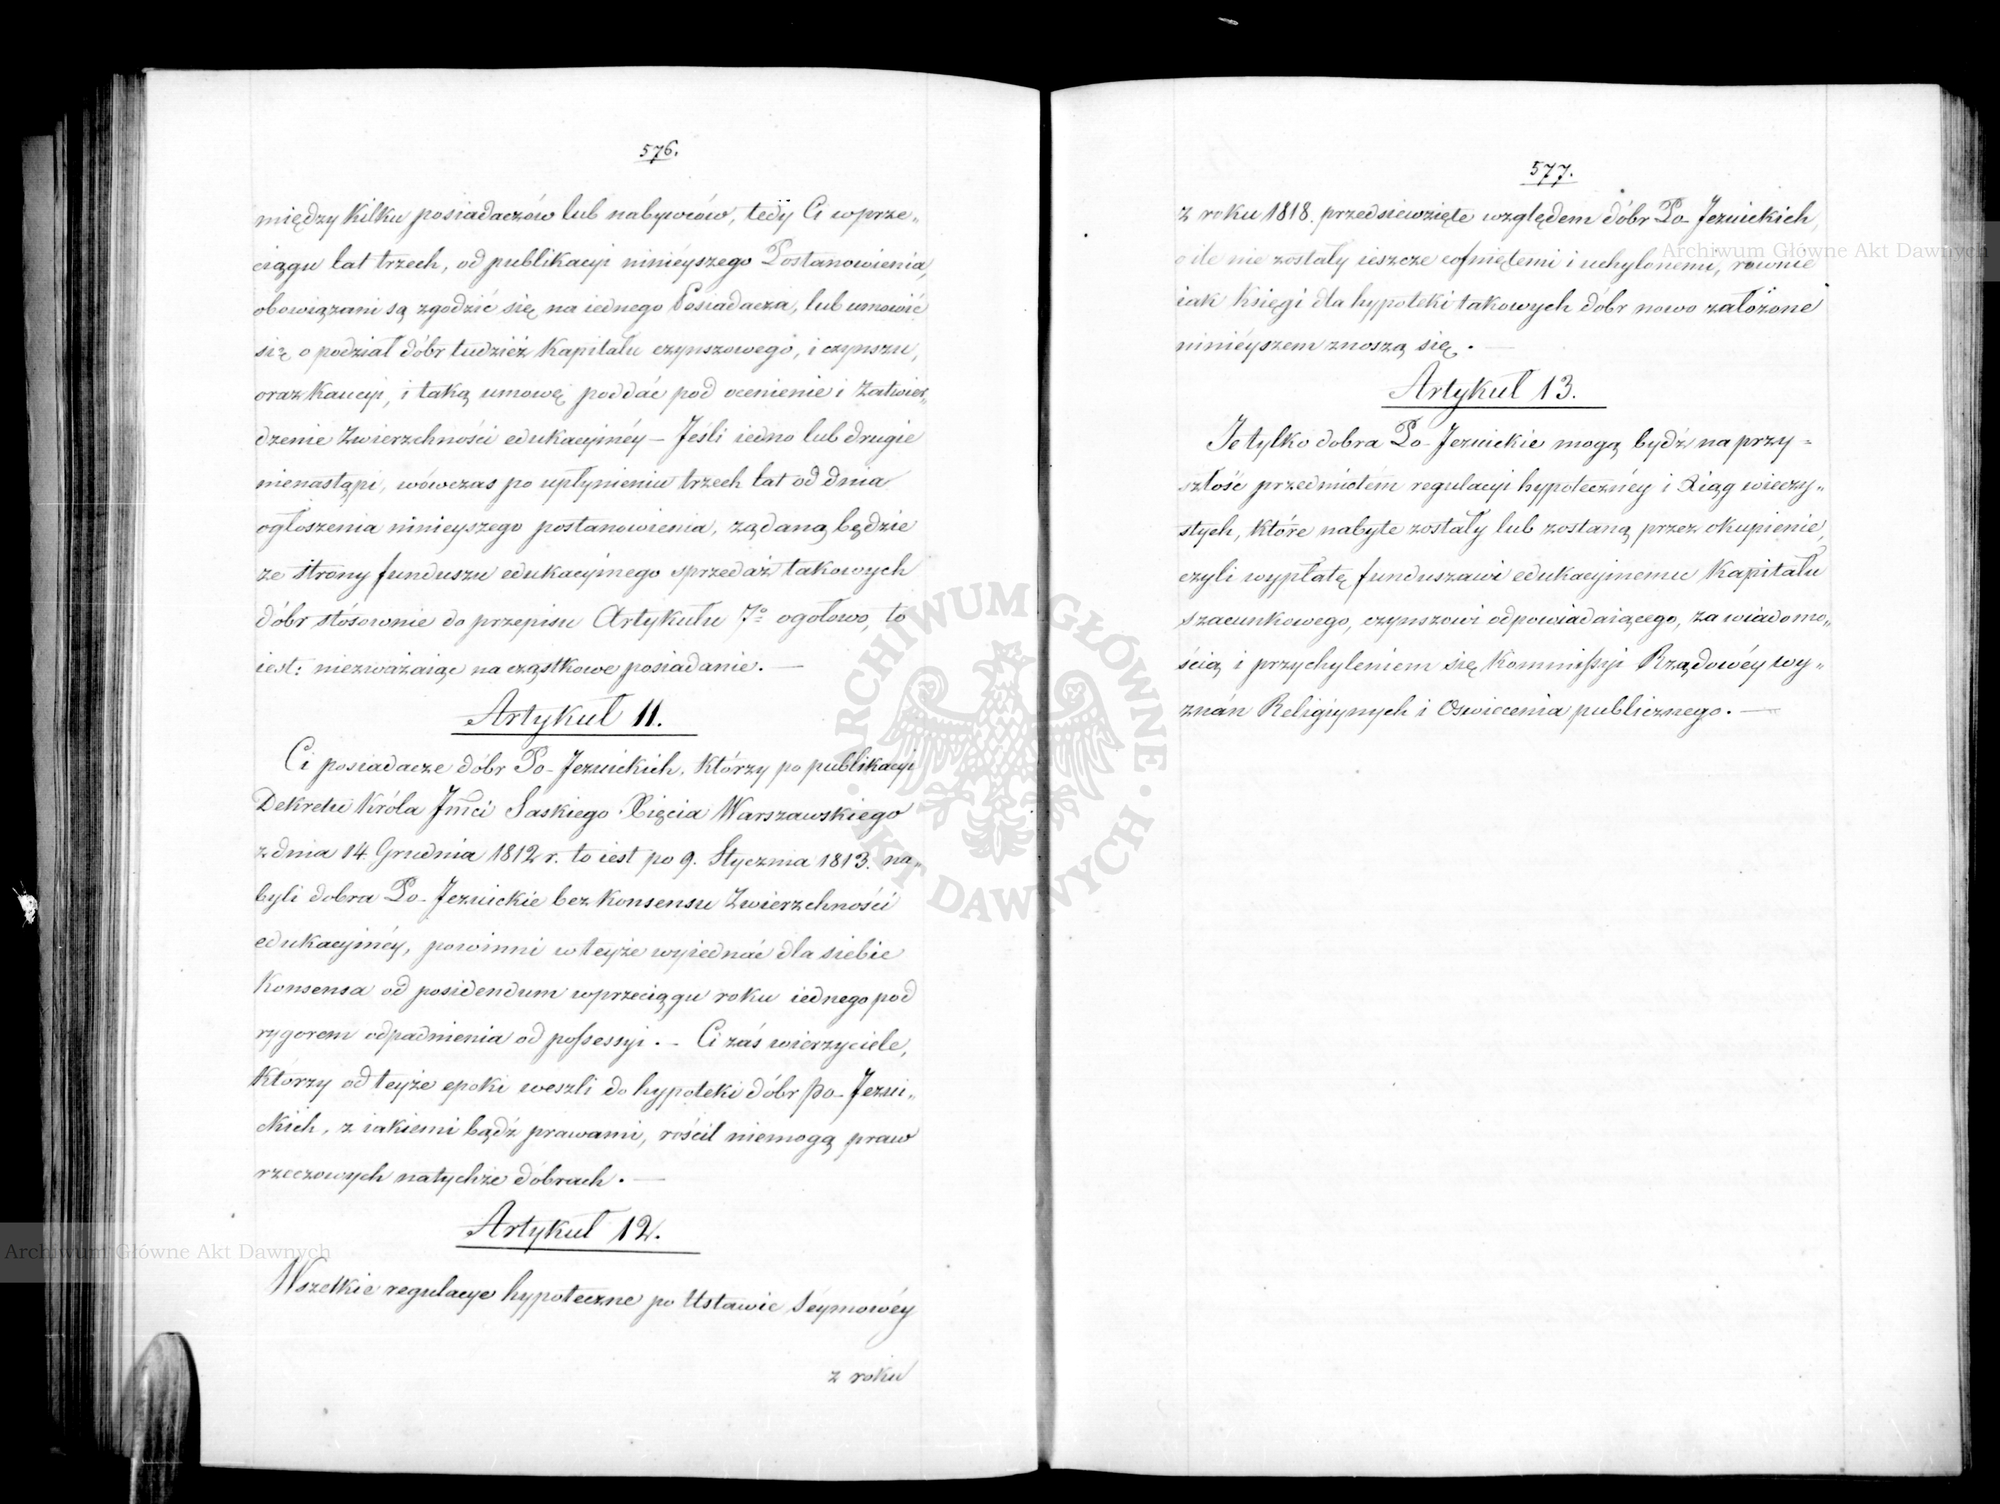 576.
między kilku posiadaczów lub nabywców, tedÿ Ci w prze„
ciągu lat trzech, od publikacyi ninieyszego Postanowienia,
obowiązani są zgodzić się na iednego Posiadacza, lub umowić
się o podział dóbr tudzież kapitału czynszowego, i czynszu,
oraz kaucyi, i taką umowę poddać pod ocenienie i zatwier„
dzenie Zwierzchności edukacyinéy – Jeśli iedno lub drugie
nienastąpi, wówczas po upłynieniu trzech lat od dnia
ogłoszenia ninieyszego postanowienia, żądaną będzie
ze strony funduszu edukacyinego sprzedaż takowych
dóbr stósownie do przepisu Artykułu 7º ogołowo, to
iest: niezważaiąc na cząstkowe posiadanie. —
Artykuł 11.
Ci posiadacze dóbr Po-Jezuickich, którzy po publikacyi
Dekretu Króla Jmci Saskiego Xięcia Warszawskiego
z dnia 14 Grudnia 1812 r. to iest po 9. Stycznia 1813. na„
byli dobra Po-Jezuickie bez konsensu Zwierzchności
edukacyinéy, powinni w teyże wyiednać dla siebie
konsensa od posidendum w przeciągu roku iednego pod
rygorem odpadnienia od possessyi. – Ci zaś wierzyciele,
którzy od teyże epoki weszli do hypoteki dóbr po-Jezui„
ckich, z iakiemi bądź prawami, rościł niemogą praw
rzeczowych na tychże dóbrach. —
Artykuł 12.
Wszelkie regulacye hypoteczne po Ustawie Séymowéy
z roku
577.
z roku 1818. przedsiewzięte względem dóbr Po-Jezuickich,
o ile nie zostały ieszcze cofniętemi i uchylonemi, rownie
iak księgi dla hypoteki takowych dóbr nowo założone
ninieyszem znoszą się. —
Artykuł 13.
Te tylko dobra Po-Jezuickie mogą bydź na przy=
szłość przedmiotem regulacyi hypotecznéy i Xiąg wieczy„
stych, które nabyte zostały lub zostaną przez okupienie,
czyli wypłatę funduszowi edukacyinemu kapitału
szacunkowego, czynszowi odpowiadaiącego, za wiadomo„
ścią i przychyleniem się Kommissyi Rządowéy wy„
znań Religiynych i Oswiecenia publicznego. —
Archiwum Główne Akt Dawnych
Archiwum Główne Akt Dawnych
ARCHIWUM GŁÓWNE
AKT DAWNYCH